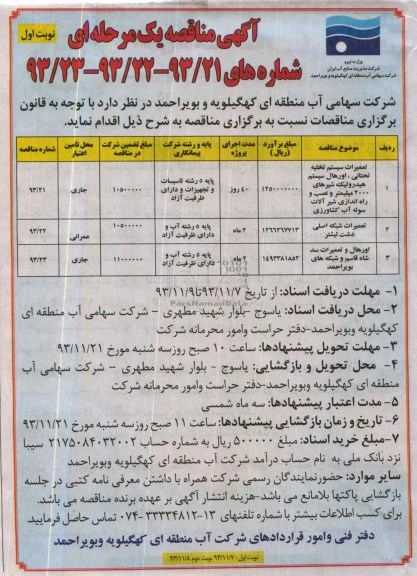 آگهی مناقصه یک مرحله ای
نوبت اول
شماره های ۹۳/۲۱-۹۳/۲۲-۹۳/۲۳
وزارت نیرو
شرکت مدیریت منابع آب ایران
شرکت سهامی آب منطقه ای کهگیلویه و بویراحمد
شرکت سهامی آب منطقه ای کهگیلویه و بویراحمد در نظر دارد با توجه به قانون
برگزاری مناقصات نسبت به برگزاری مناقصه به شرح ذیل اقدام نماید.
ردیف موضوع مناقصه مبلغ برآورد (ریال) مدت اجرای پروژه پایه و رشته شرکت پیمانکاری مبلغ تضمین شرکت در مناقصه محل تامین اعتبار شماره مناقصه
۱ تعمیرات سیستم تخلیه تحتانی ، اورهال سیستم هیدرولیک شیرهای ۲۰۰۰ میلیمتر و نصب و راه اندازی شیر آلات سوله آب کشاورزی ۱۲۵۰۰۰۰۰۰۰ ۴۰ روز پایه ۵ رشته تاسیسات و تجهیزات و دارای ظرفیت آزاد ۱۰۵۰۰۰۰۰ جاری ۹۳/۲۱
۲ تعمیرات شبکه اصلی دشت لیشتر ۱۲۶۶۲۶۷۷۱۳ ۲ ماه پایه ۵ رشته آب و دارای ظرفیت آزاد ۱۰۵۰۰۰۰۰ عمرانی ۹۳/۲۲
۳ اورهال و تعمیرات سد شاه قاسم و شبکه های بویراحمد ۱۴۹۳۳۸۱۸۵۲ ۲ ماه پایه ۵ رشته آب و دارای ظرفیت آزاد ۱۱۰۰۰۰۰۰ جاری ۹۳/۲۳
۱- مهلت دریافت اسناد: از تاریخ ۹۳/۱۱/۷ تا ۹۳/۱۱/۹
۲- محل دریافت اسناد: یاسوج -بلوار شهید مطهری - شرکت سهامی آب منطقه ای
کهگیلویه وبویراحمد-دفتر حراست وامور محرمانه شرکت
۳- مهلت تحویل پیشنهادها: ساعت ۱۰ صبح روزسه شنبه مورخ ۹۳/۱۱/۲۱
۴- محل تحویل و بازگشایی: یاسوج - بلوار شهید مطهری - شرکت سهامی آب
منطقه ای کهگیلویه وبویراحمد- دفتر حراست وامور محرمانه شرکت
۵- مدت اعتبار پیشنهادها: سه ماه شمسی
۶- تاریخ و زمان بازگشایی پیشنهادها: ساعت ۱۱ صبح روزسه شنبه مورخ ۹۳/۱۱/۲۱
۷-مبلغ خرید اسناد: مبلغ ۵۰۰۰۰۰ ریال به شماره حساب ۲۱۷۵۰۸۴۰۳۲۰۰۲ سیبا
نزد بانک ملی به نام حساب درآمد شرکت آب منطقه ای کهگیلویه وبویراحمد
سایر موارد: حضورنمایندگان رسمی شرکت همراه با داشتن معرفی نامه کتبی در جلسه
بازگشایی پاکتها بلامانع می باشد-هزینه انتشار آگهی بر عهده برنده مناقصه می باشد.
برای کسب اطلاعات بیشتر با شماره تلفنهای ۱۳-۳۳۳۳۴۸۱۲-۰۷۴ تماس حاصل فرمایید.
دفتر فنی وامور قراردادهای شرکت آب منطقه ای کهگیلویه وبویراحمد
نوبت اول : ۹۳/۱۱/۷ نوبت دوم ۹۳/۱۱/۸